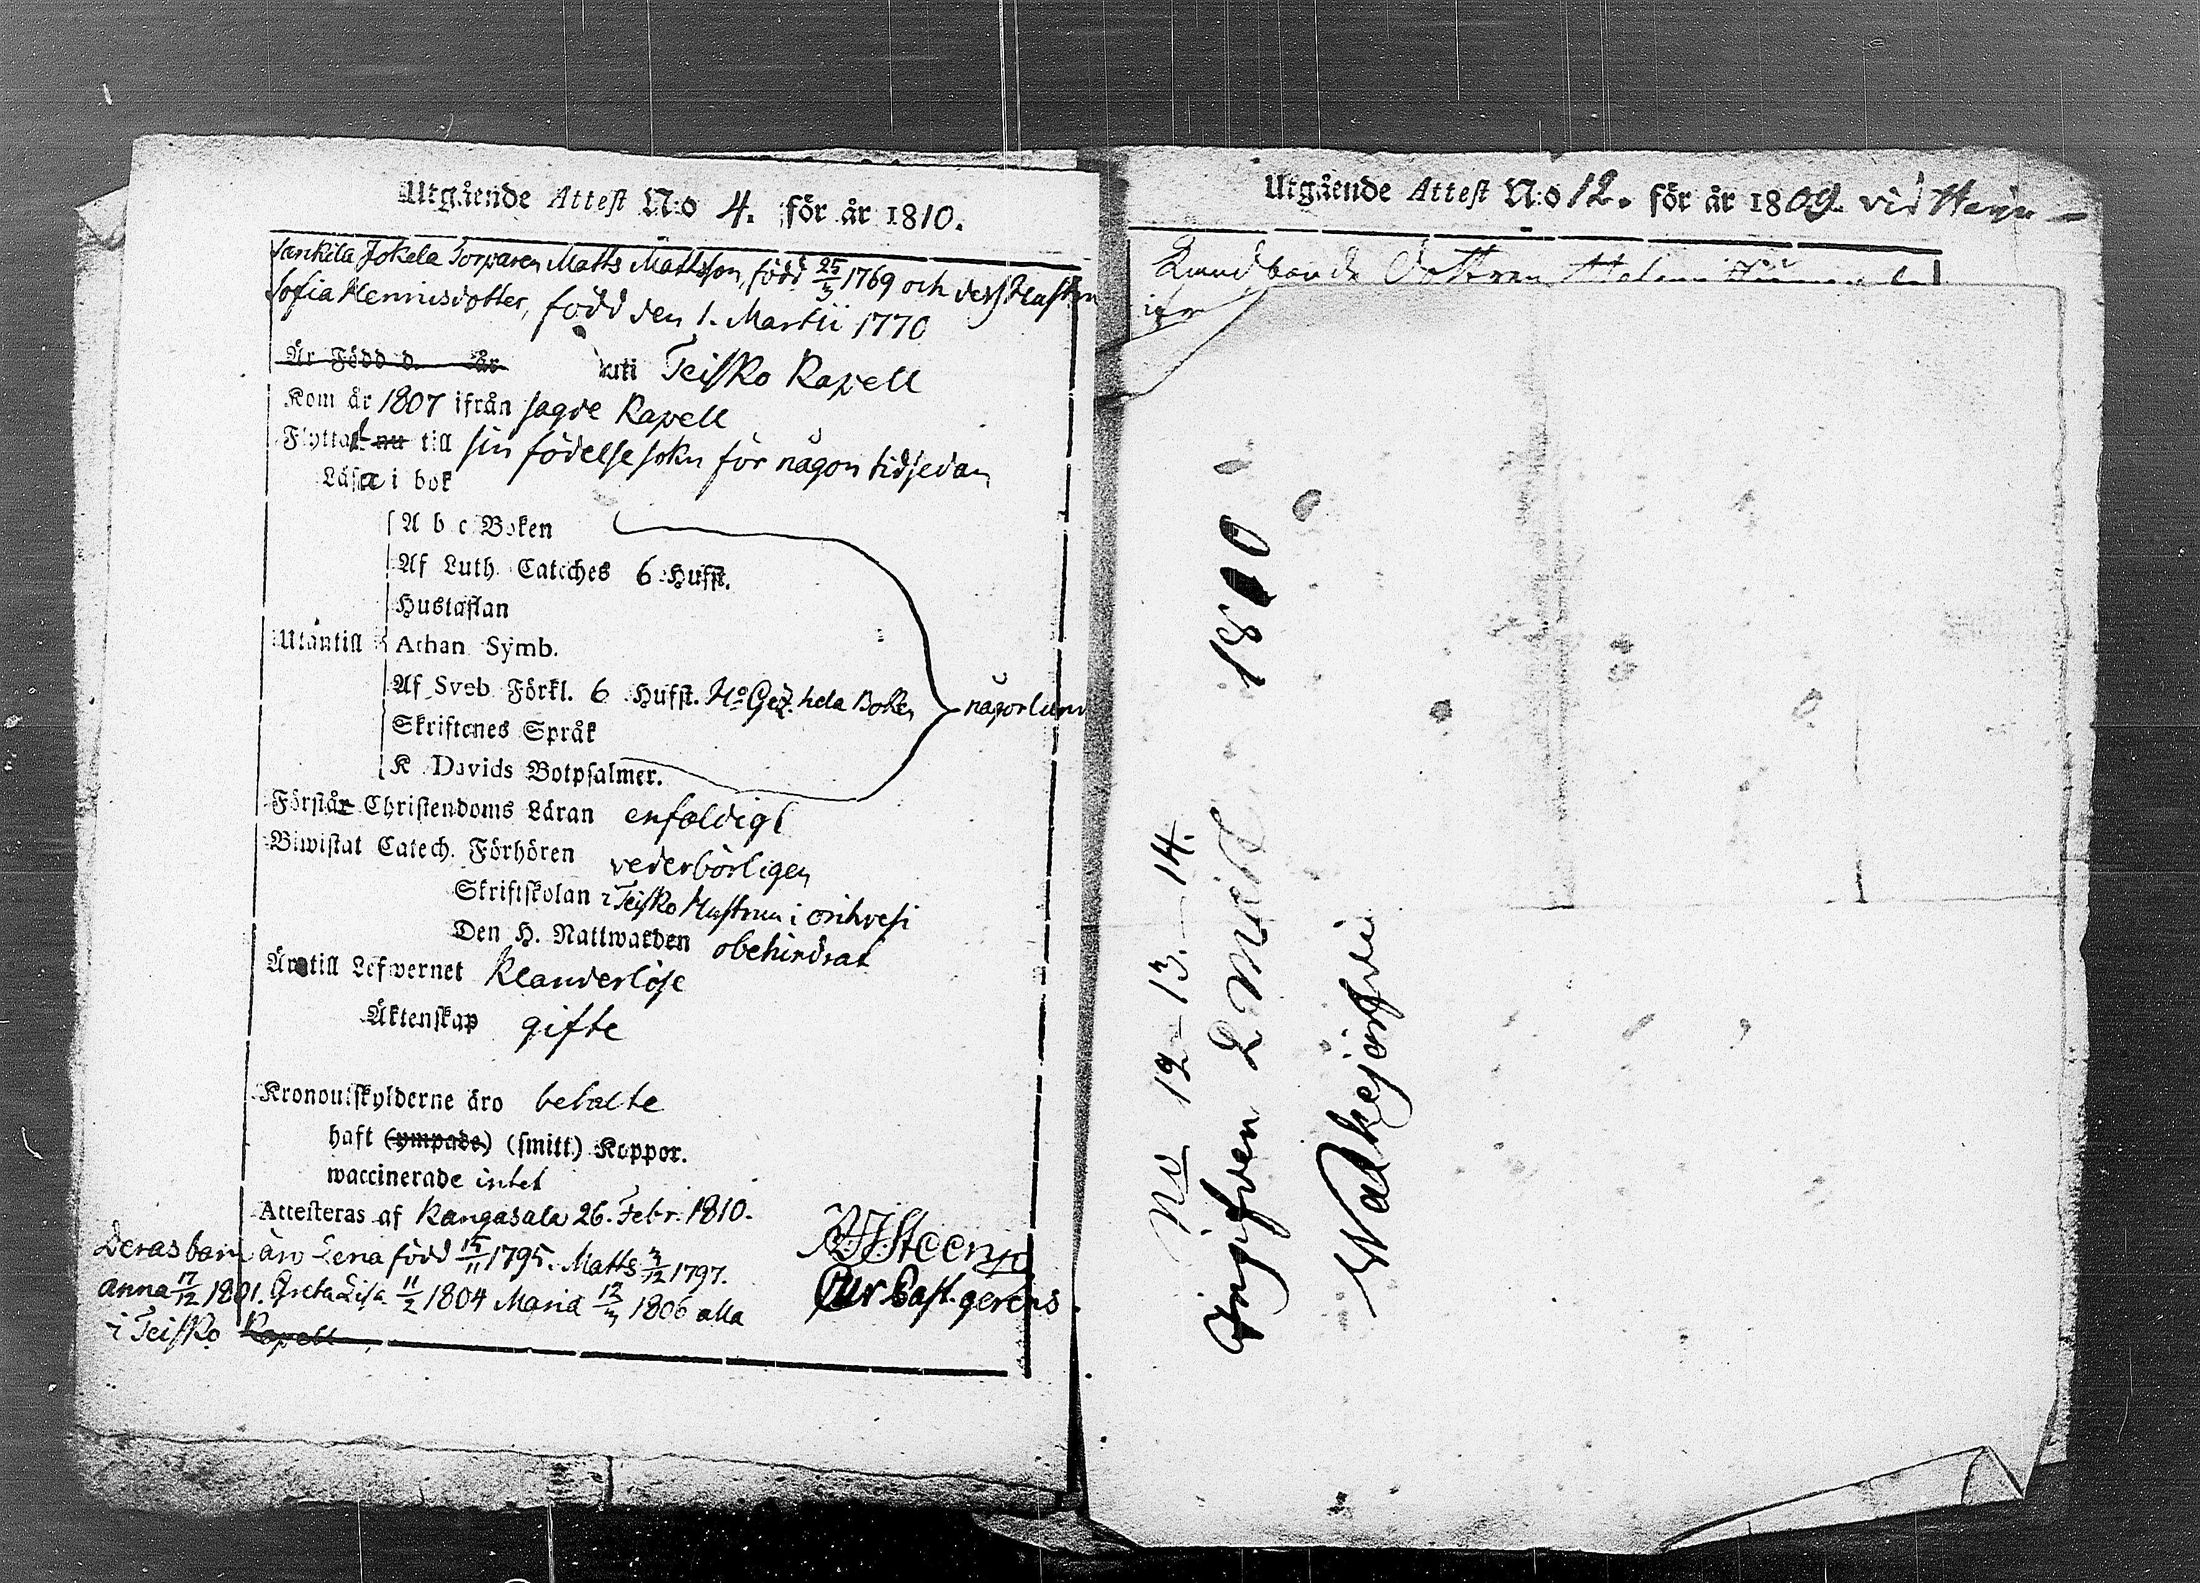 Utgående Attest N:o 4. för år 1810.
Sankila Jokela Torparen Matts Mattsson, född 25/3 1769 och dess Hustru
Sofia Henricsdotter, född den 1. Martii 1770
Är Född d. År uti Teisko Kapell
Kom år 1807 ifrån sagde Kapell
Flyttat nu till sin födelse sokn för någon tid sedan
Läsa i bok
A b c Boken
Af Luth. Catches 6 Hufst.
Hustaflan
Utantill Athan Symb.
Af Sveb Förkl. 6 Hufst. Ho Gez. hela Boken någorlunda
Skriftenes Språk
K Davids Botpsalmer.
Förstår Christendoms Läran enfaldigt
Biwistat Catech. Förhören vederbörligen
Skriftskolan i Teisko Hustrun i Orihvesi
Den H. Nattwarden obehindrat
Äro till Lefwernet Klanderlöse
Äktenskap gifte
Kronoutskylderne äro betalte
haft (ympade) (smitt.) Koppor.
waccinerade intet
Attesteras af Kangasala 26. Febr. 1810.
Deras barn äro Lena född 15/11 1795. Matts 3/12 1797.
Anna 17/12 1801. Greta Lisa 11/2 1804 Maria 12/3 1806 alla
i Teisko Kapell
Steen
Cur Past. gerens.
Utgående Attest N:o 12. för år 1809. vid
No 12 - 13. - 14.
1810
Ingifven